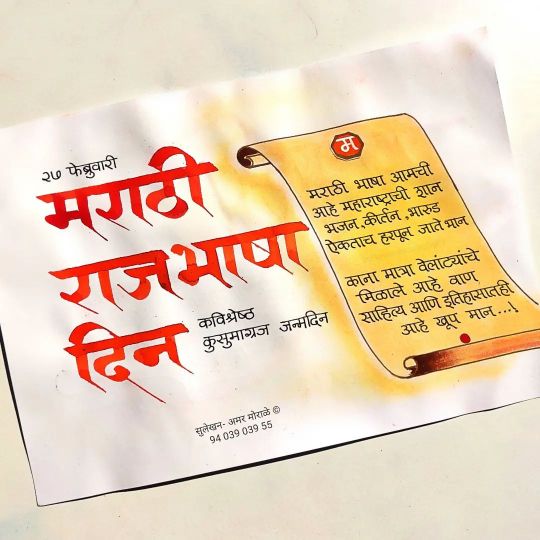 २७ फेब्रुवारी
मराठी
राजभाषा
दिन
कविश्रेष्ठ
कुसुमाग्रज जन्मदिन
म
मराठी भाषा आमची
आहे महाराष्ट्राची शान
भजन, कीर्तन, भारुड
ऐकताच हरपून जाते भान
काना मात्रा वेलांट्यांचे
मिळाले आहे वाण
साहित्य आणि इतिहासातही
आहे खूप मान...!
सुलेखन- अमर मोराळे ©
94 039 039 55